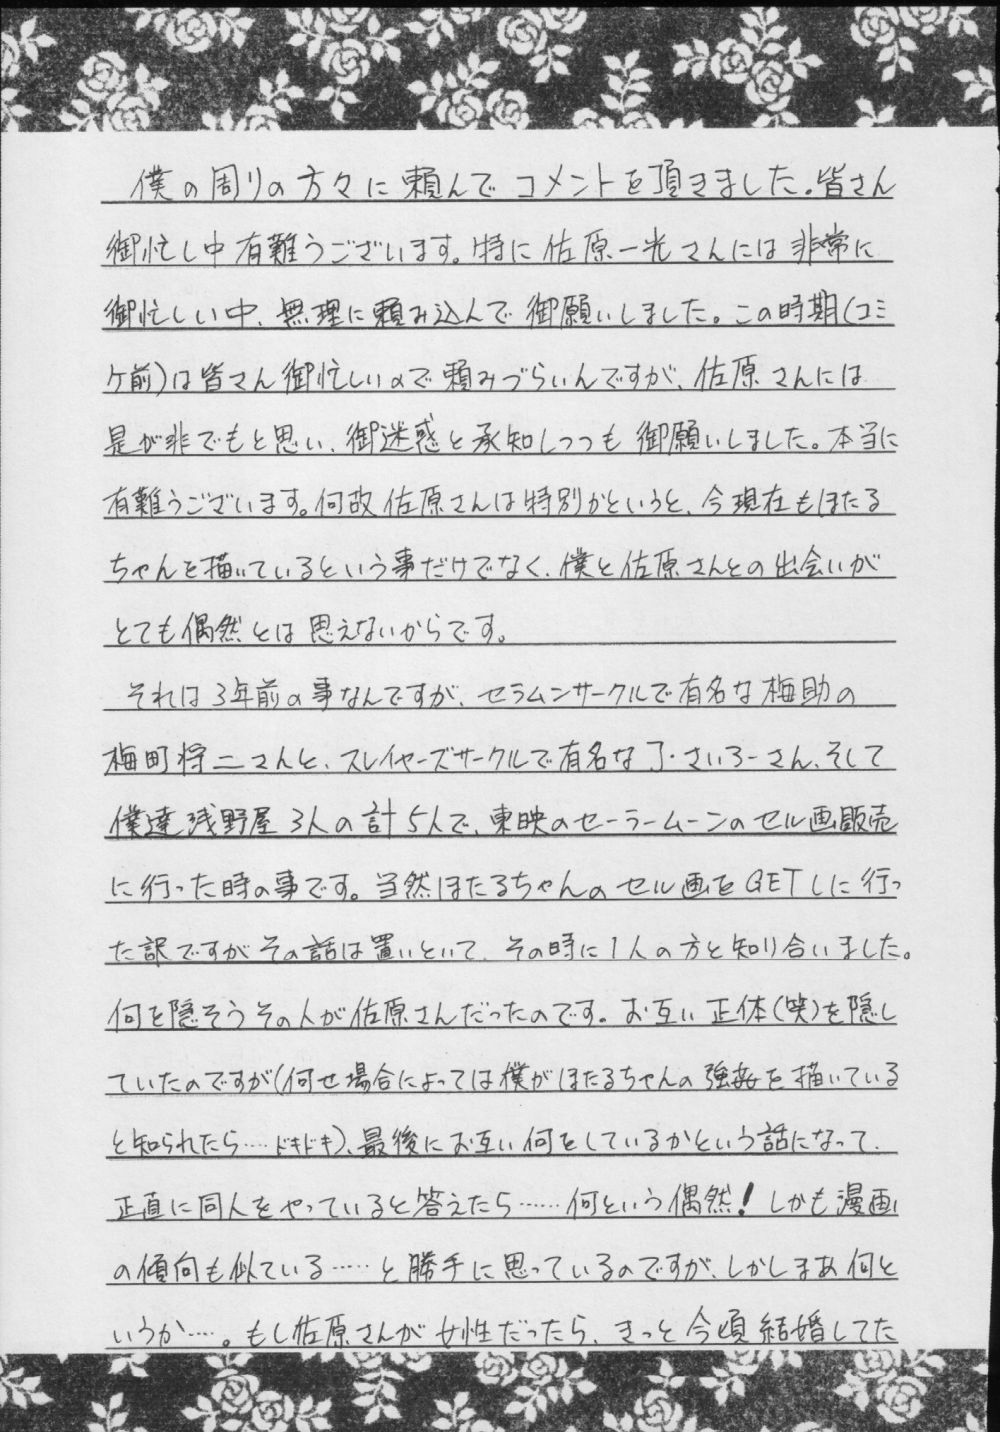 僕の周りの方々に頼んでコメントを頂きました。皆さん
御忙し中有難うございます。特に佐原一光さんには非常に
御忙しい中、無理に頼み込んで御願いしました。この時期(コミ
ケ前)は皆さん御忙しいので頼みづらいんですが、佐原さんには
是が非でもと思い、御迷惑と承知しつつも御願いしました。本当に
有難うございます。何故佐原さんは特別かというと、今現在もほたる
ちゃんを描いているという事だけでなく、僕と佐原さんとの出会いが
とても偶然とは思えないからです。
それは3年前の事なんですが、セラムンサークルで有名な梅助の
梅町将二さんと、スレイヤーズサークルで有名なJ・さいろーさん、そして
僕達浅野屋3人の計5人で、東映のセーラームーンのセル画販売
に行った時の事です。当然ほたるちゃんのセル画をGETしに行っ
た訳ですがその話は置いといて、その時に1人の方と知り合いました。
何を隠そうその人が佐原さんだったのです。お互い正体(笑)を隠し
ていたのですが(何せ場合によっては僕がほたるちゃんの強姦を描いている
と知られたら‥‥ドキドキ)、最後にお互い何をしているかという話になって、
正直に同人をやっていると答えたら……何という偶然!しかも漫画
の傾向も似ている‥‥‥と勝手に思っているのですが、しかしまあ何と
いうか‥‥。もし佐原さんが女性だったら、きっと今頃結婚してた